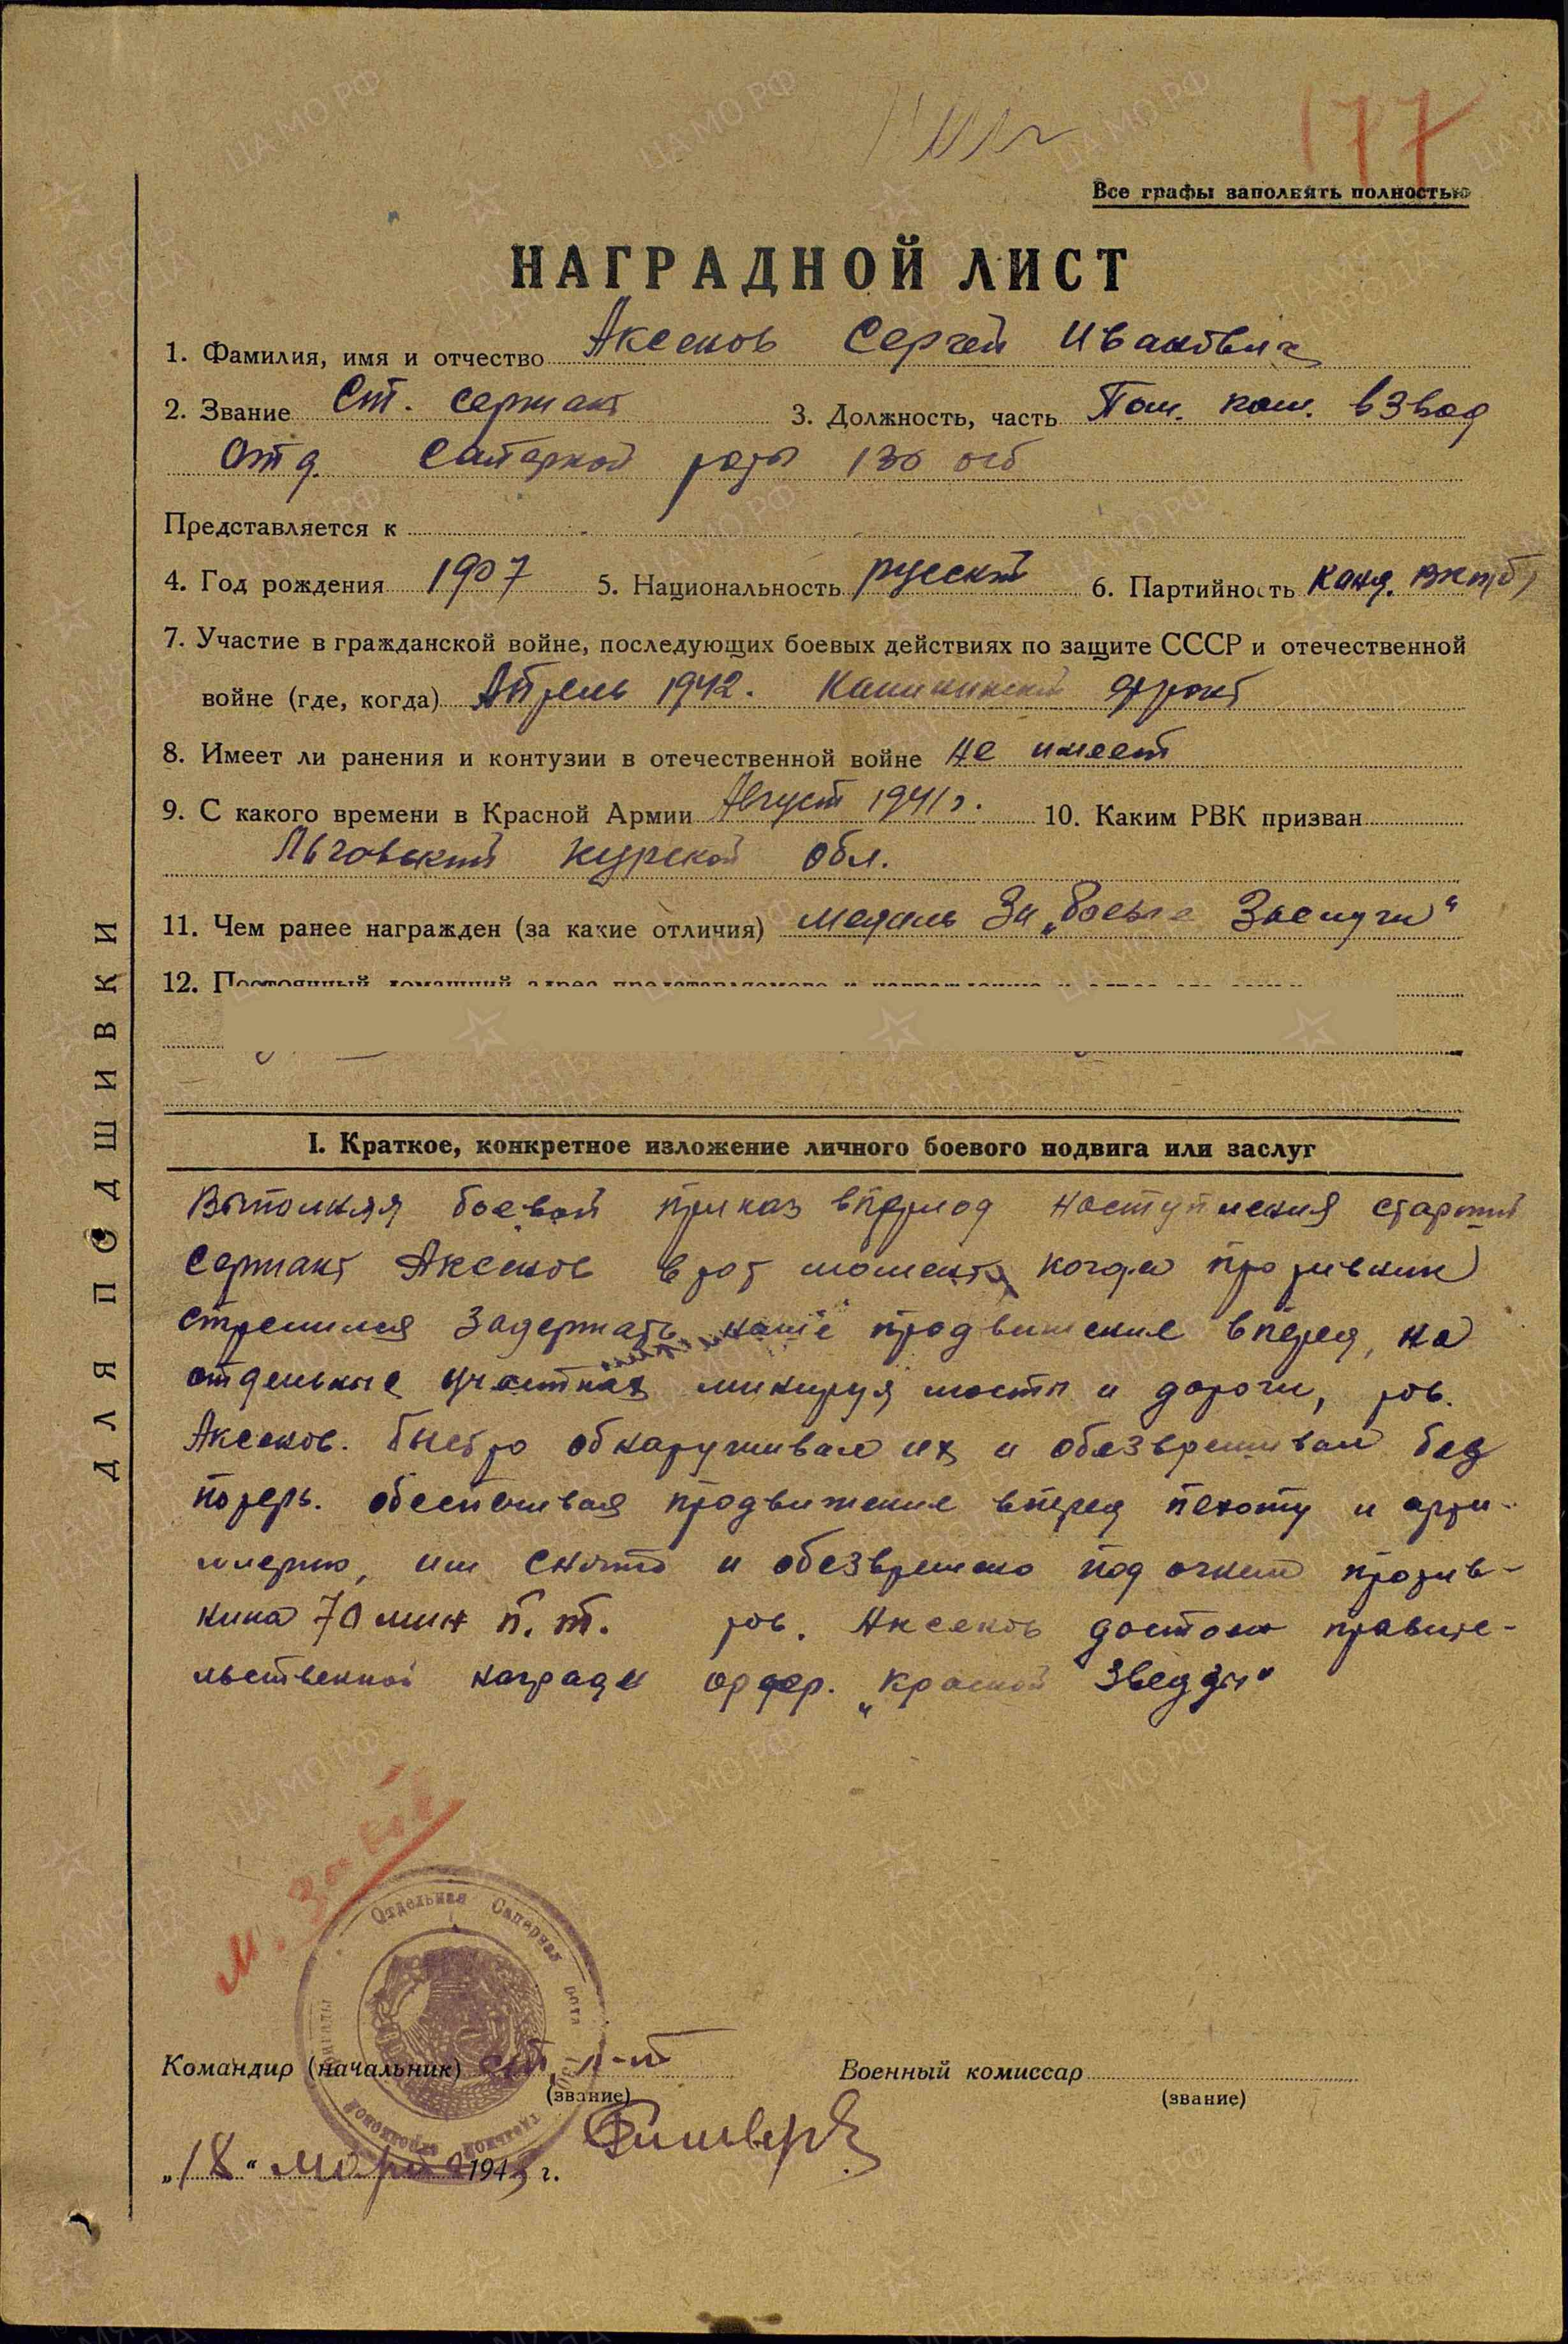 177
Все графы заполнять полностью
НАГРАДНОЙ ЛИСТ
1. Фамилия, имя и отчество Аксенов Сергей Иванович
2. Звание Ст. сержант 3. Должность, часть Пом. ком. взвод
Отд. Саперной роты 130 осб
Представляется к
4. Год рождения 1907 5. Национальность русский 6. Партийность канд. вкп(б)
7. Участие в гражданской войне, последующих боевых действиях по защите СССР и отечественной
войне (где, когда) Апрель 1942. Калининский фронт
8. Имеет ли ранения и контузии в отечественной войне не имеет
9. С какого времени в Красной Армии Август 1941 г. 10. Каким РВК призван
Льговский Курской обл.
11. Чем ранее награжден (за какие отличия) медаль За „Боевые Заслуги“
12. Постоянный домашний адрес представляемого к награждению и адрес его семьи
ДЛЯ ПОДШИВКИ
I. Краткое, конкретное изложение личного боевого подвига или заслуг
Выполняя боевой приказ впериод наступления старший
Сержант Аксенов в тот момент когда противник
стремился задержать наше продвижение вперед, на
отдельные участках минируя мосты и дороги, тов.
Аксенов. быстро обнаруживал их и обезвреживал без
потерь. обеспечивая продвижение вперед пехоту и арти-
ллерию, им снято и обезврежено под огнем против-
ника 70 мин п. т. тов. Аксенов достоин правите-
льственной награды орден. „Красной Звезды“
М. За б/з
Отдельная Саперная рота
стрелковой бригады
Командир (начальник) ст. л-т Военный комиссар
(звание) (звание)
„18“ марта 1943 г.